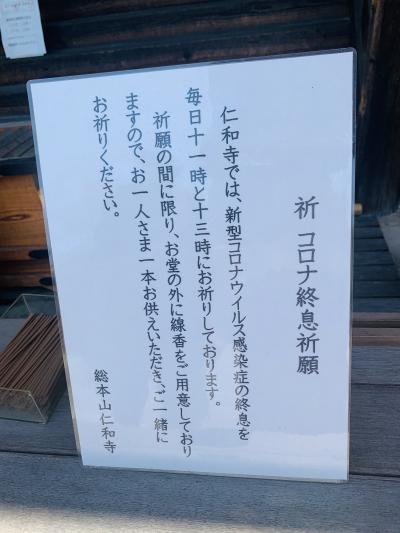 祈 コロナ終息祈願
仁和寺では、新型コロナウイルス感染症の終息を
毎日十一時と十三時にお祈りしております。
祈願の間に限り、お堂の外に線香をご用意しており
ますので、お一人さま一本お供えいただき、ご一緒に
お祈りください。
総本山仁和寺